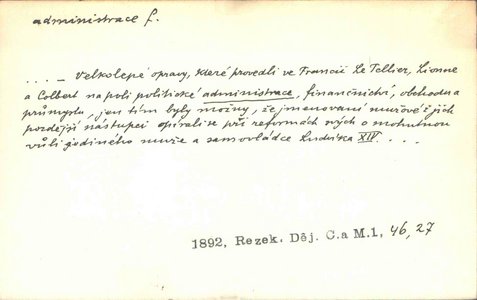 administrace f.
... – Velkolepé opravy, které provedli ve Francii Le Tellier, Lionne
a Colbert na poli politické administrace, financnictví, obchodu a
průmyslu, jen tím byly možny, že jmenovaní mužové i jich
pozdější nástupci opírali se při reformách svých o mohutnou
vůli jediného muže a samovládce Ludvíka XIV. ...
1892, Rezek. Děj. C. a M. 1, 46, 27